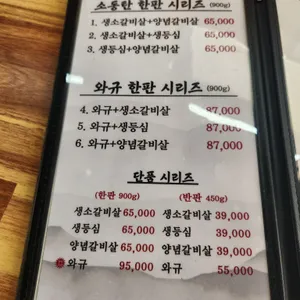 소통한 한판 시리즈 (900g)
1. 생소갈비살+양념갈비살 65,000
2. 생소갈비살+생등심 65,000
3. 생등심+양념갈비살 65,000
와규 한판 시리즈 (900g)
4. 와규+생소갈비살 87,000
5. 와규+생등심 87,000
6. 와규+양념갈비살 87,000
단품 시리즈
(한판 900g) (반판 450g)
생소갈비살 65,000 생소갈비살 39,000
생등심 65,000 생등심 39,000
양념갈비살 65,000 양념갈비살 39,000
와규 95,000 와규 55,000